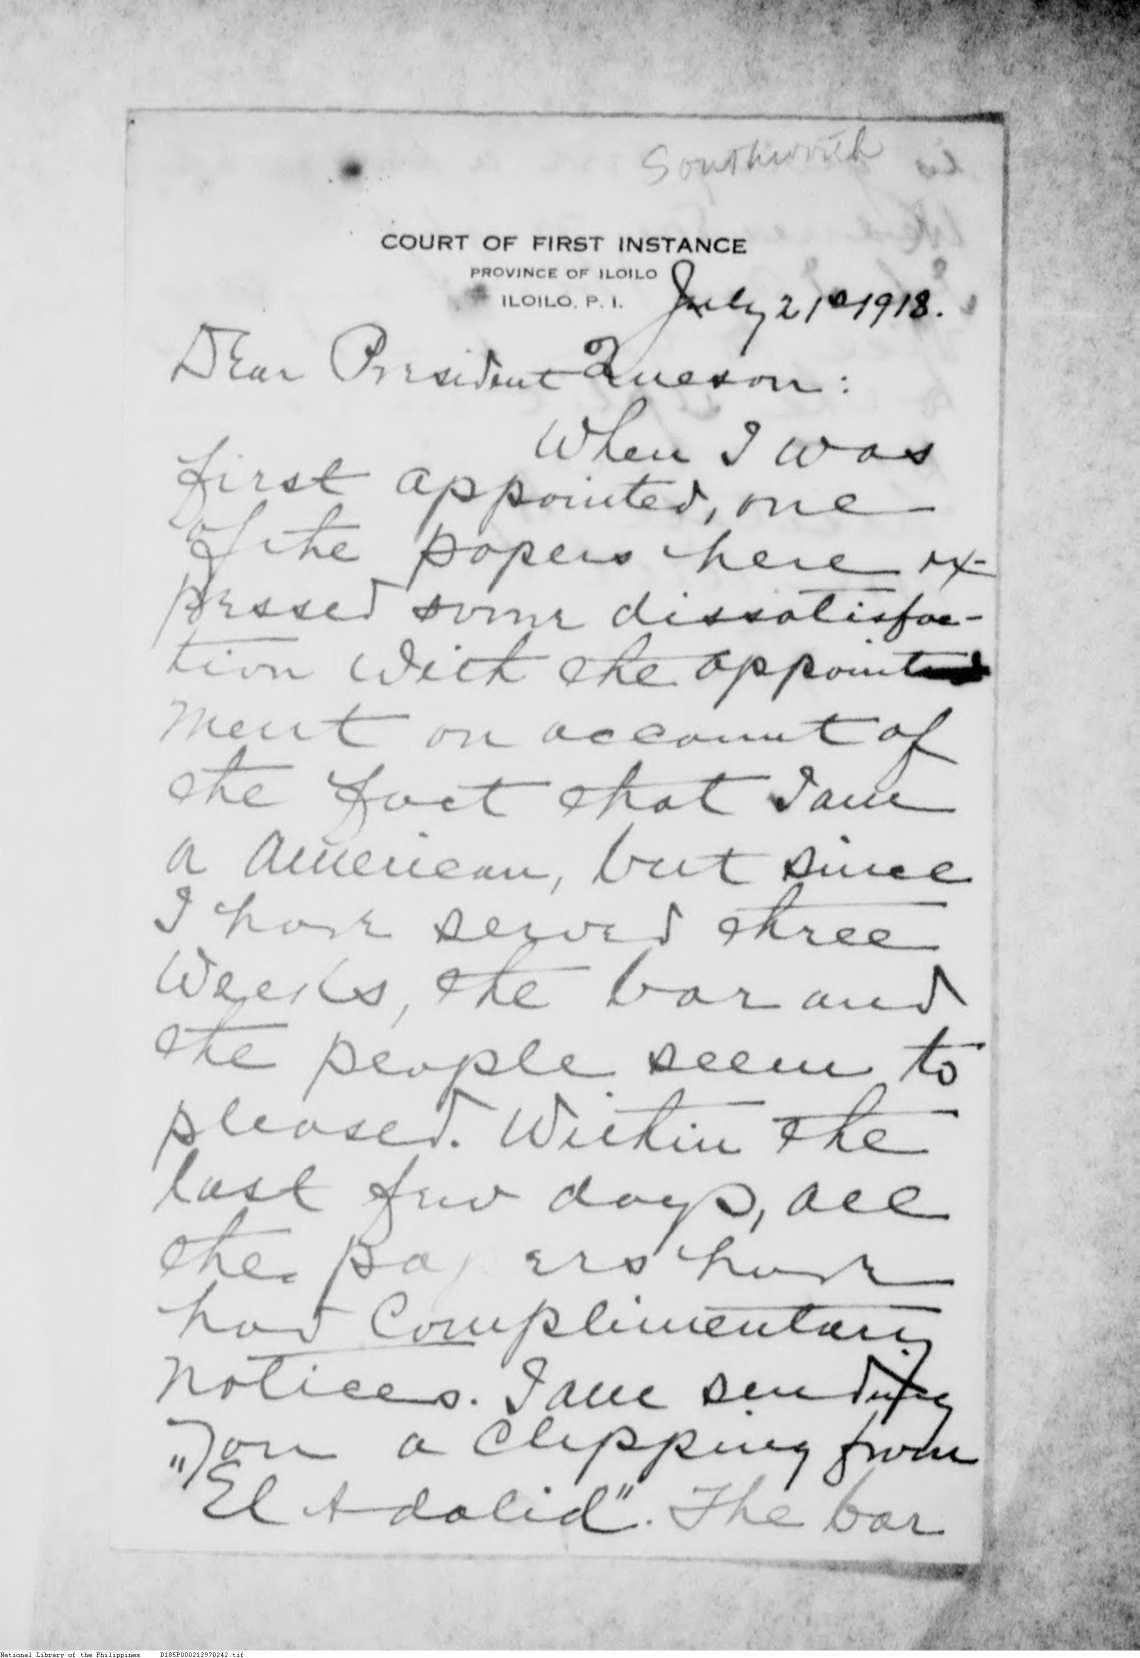 Southworth
COURT OF FIRST INSTANCE
PROVINCE OF ILOILO
ILOILO, P. I.
July 21st 1918.
Dear President Quezon:
When I was
first appointed, one
of the papers here ex-
pressed some dissatisfac-
tion with the appoint
ment on account of
the fact that I am
a American, but since
I have served three
weeks, the bar and
the people seem to
pleased. Within the
last few days, all
the papers have
had Complimentary
notices. I am sending
you a clipping from
"El Adalid". The bar
National Library of the Philippines D185P000212970242.tif